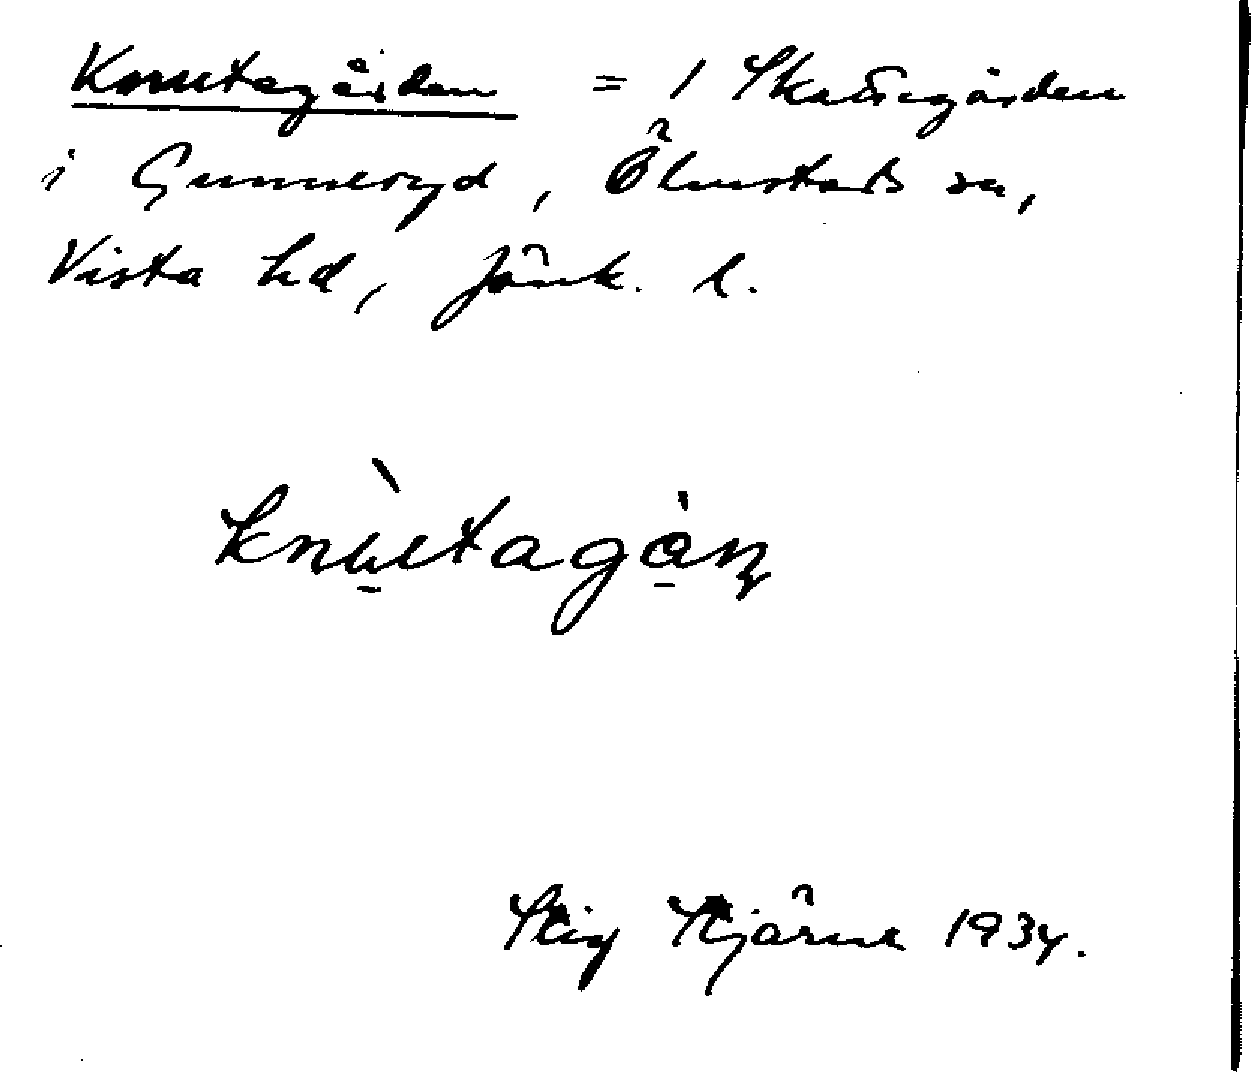 Knutagården = 1 Skattegården
i Gunneryd, Ölmstads sn,
Vista hd, Jönk. l.
knùtagàṇ
Stig Stjärne 1934.